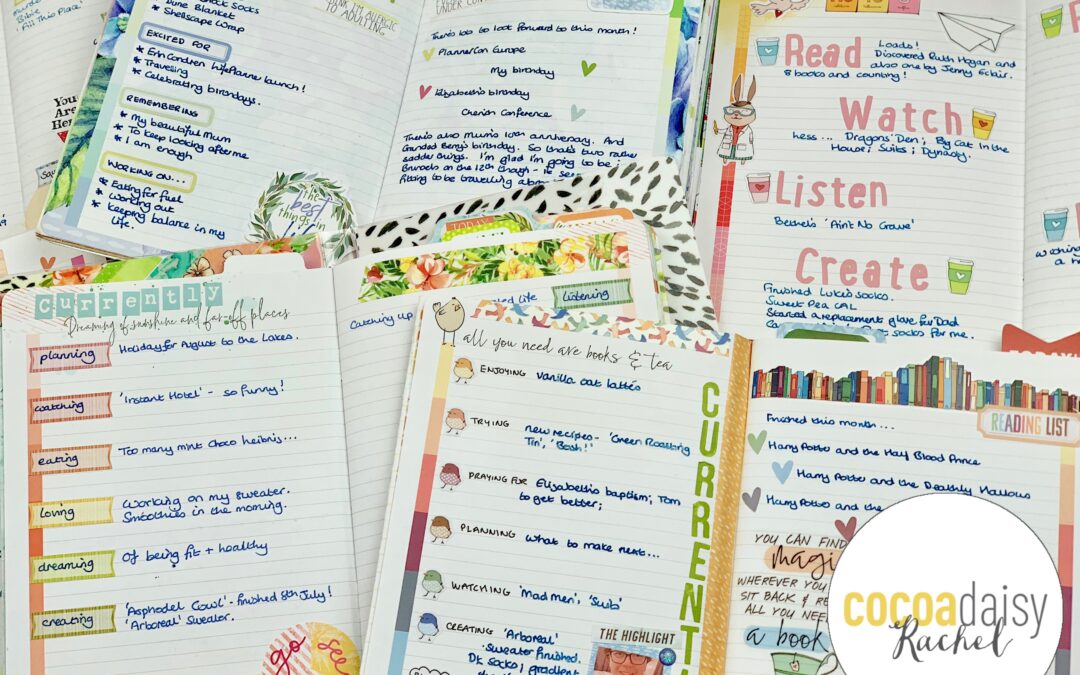 Bible
'All this Place'
You
Are
Here
Socks
Dune Blanket
* Shellscape Wrap
EXCITED FOR
* Erin Condren LifePlanner launch!
* Travelling
* Celebrating birthdays.
REMEMBERING
* My beautiful Mum
* To keep looking after me
* I am enough
WORKING ON...
* Eating for fuel
* Working out
* Keeping balance in my
life.
THINK I'M ALLERGIC
TO ADULTING
UNDER CON
There's lots to look forward to this month!
PlannerCon Europe
My birthday
Elizabeth's birthday
Cherish Conference
There's also mum's 10th anniversary. And
Grandad Beny's birthday. So that's two rather
sadder things. I'm glad I'm going to be i
Brussels on the 12th though - it see
fitting to be travelling alon
The
best
things
in
Read
Loads!
Discovered Ruth Hogan and
also one by Jenny Eclair.
8 books and counting!
Watch
hess... Dragons' Den; Big Cat in the
House; Suits; Dynasty.
Listen
Bethel's 'Ain't No Grave'
Create
Finished Luka's socks.
Sweet Pea CAL
Started a replacement glove for Dad
socks for me.
currently
Dreaming of sunshine and far-off places
planning
Holiday for August to the Lakes.
watching
'Instant Hotel' - so funny!
eating
Too many mint choco heibnis...
loving
Working on my sweater.
Smoothies in the morning.
dreaming
Of being fit + healthy
creating
'Asphodel Cowl' - finished 8th July!
'Arboreal' Sweater.
go see
Catching Up
listening
all you need are books & tea
CURRENT
ENJOYING vanilla oat lattés
TRYING new recipes - 'Green Roasting
Tin', 'Bosh!'
PRAYING FOR Elizabeth's baptism; Tom
to get better;
PLANNING what to make next...
WATCHING 'Mad men', 'Suits'
CREATING 'Arboreal'
Sweater finished.
DK Socks; gradient
THE HIGHLIGHT
READING LIST
Finished this month...
Harry Potter and the Half Blood Prince
Harry Potter and the Deathly Hallows
Harry Potter and the
YOU CAN FIND
magi
WHEREVER YOU
SIT BACK & RE
ALL YOU NEED
a book
cocoadaisy
Rachel